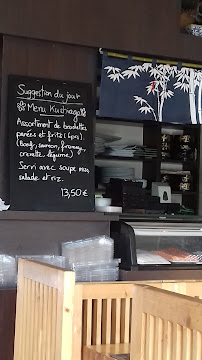 Suggestion du jour
Menu Kushiage
Assortiment de brochettes
panées et frits (6prs)
(Boeuf, saumon, fromage,
crevette, légume)
Servi avec soupe miso,
salade et riz
13,50€